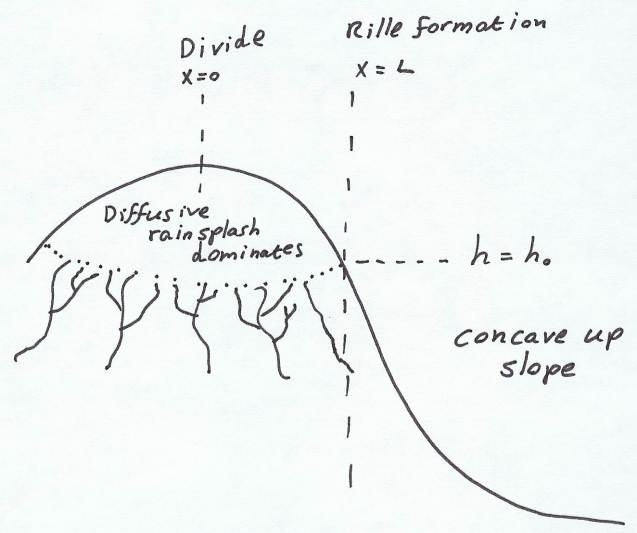 Divide
x=0
Rille formation
x = L
Diffusive
rainsplash
dominates
h = h₀
concave up
slope